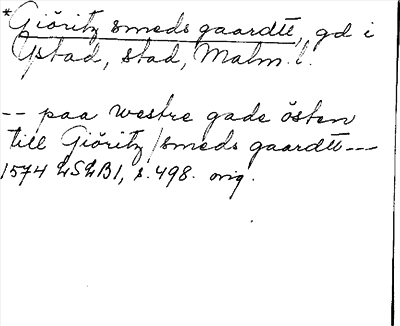 *Giöritz smeds gaardtt, gd i
Ystad, stad, Malm. l.
-- paa westre gade östen
till Giöritz/smeds gaardtt---
1574 LSLB1, s. 498. orig.